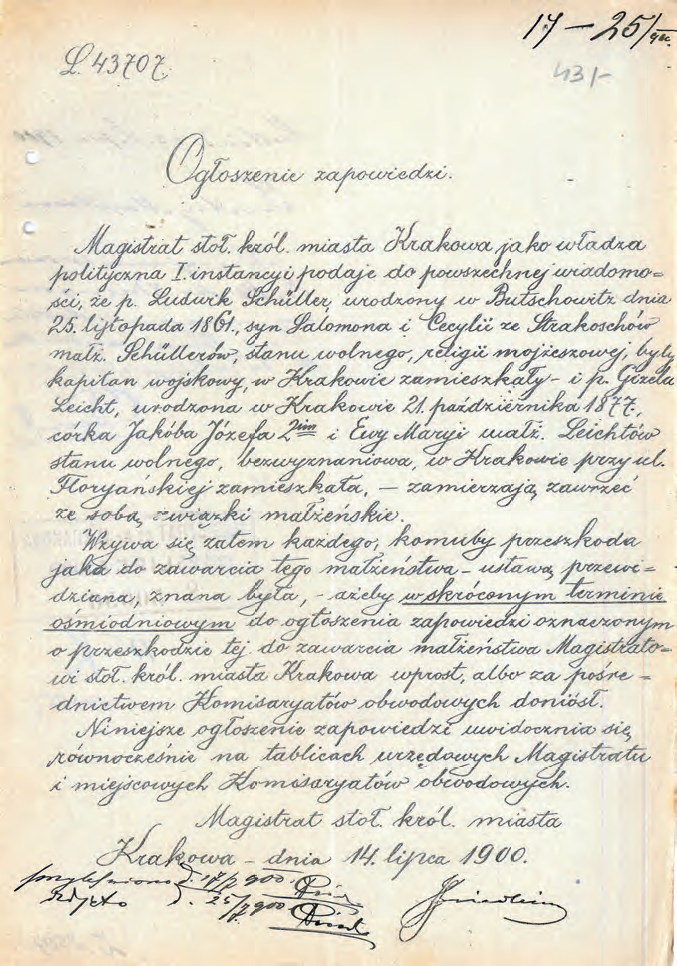 17 – 25/7 900.
L. 43707.
431-
Ogłoszenie zapowiedzi.
Magistrat stoł. król. miasta Krakowa jako władza
polityczna I. instancyi podaje do powszechnej wiadomo=
ści, że p. Ludwik Schüller, urodzony w Butschowitz dnia
25. listopada 1861, syn Salomona i Cecylii ze Strakoschów
małż. Schüllerów, stanu wolnego, religii mojżeszowej, były
kapitan wojskowy, w Krakowie zamieszkały – i p. Gizela
Leicht, urodzona w Krakowie 21. października 1877,
córka Jakóba Józefa 2im i Ewy Maryi małż. Leichtów
stanu wolnego, bezwyznaniowa, w Krakowie przy ul.
Floryańskiej zamieszkała, – zamierzają zawrzeć
ze sobą związki małżeńskie.
Wzywa się zatem każdego, komuby przeszkoda
jaka do zawarcia tego małżeństwa – ustawą przewi=
dziana, znana była, – ażeby w skróconym terminie
ośmiodniowym do ogłoszenia zapowiedzi oznaczonym
o przeszkodzie tej do zawarcia małżeństwa Magistrato=
wi stoł. król. miasta Krakowa wprost, albo za pośre=
dnictwem Komisaryatów obwodowych doniósł.
Niniejsze ogłoszenie zapowiedzi uwidocznia się
równocześnie na tablicach urzędowych Magistratu
i miejscowych Komisaryatów obwodowych.
Magistrat stoł. król. miasta
Krakowa – dnia 14. lipca 1900.
przylepiono d. 17/7 900.
zdjęto d. 25/7 900.
Friedlein